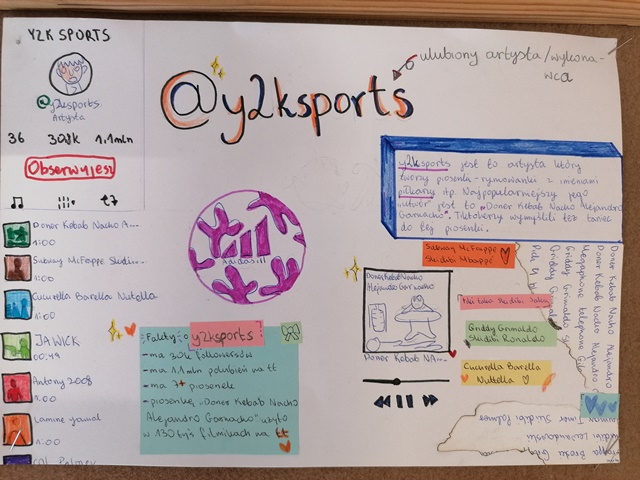 Y2K SPORTS
@y2ksports
Artysta
36 308k 1.1mln
Obserwujesz
Doner Kebab Nacho A...
1:00
Subway McFrappe Skidi...
1:00
Cucurella Barella Nutella
1:00
JA WICK
00:49
Antony 2008
1:00
Lamine Yamal
1:00
Palmer
@y2ksports
ulubiony artysta/wykona-
wca
Adidas ill
y2ksports jest to artysta który
tworzy piosenki-rymowanki z imieniami
piłkarzy itp. Najpopularniejszy jego
utwór jest to „Doner Kebab Nacho Alejandro
Garnacho". Tiktokerzy wymyślili też taniec
do tej piosenki.
Fakty o y2ksports
- ma 308k followersów
- ma 1.1mln polubień na tt
- ma 7+ piosenek
- piosenkę „Doner Kebab Nacho
Alejandro Garnacho" użyto
w 130tyś filmikach na tt
Doner Kebab Nacho
Alejandro Garnacho
Doner Kebab NA...
Subway McFrappe
Skibidi Mbappé
Griddy Grimaldo
Skibidi Ronaldo
Cucurella Barella
Nuttella
Doner Kebab Nacho Alejandro
Doner Kebab Nacho Alejandro G
Megaphone telephone
Griddy Grimaldo
Griddy Grimaldo
Timer Skibidi Palmer